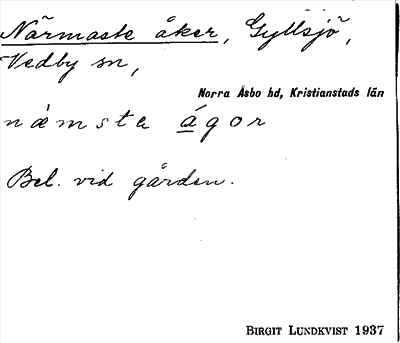 Närmaste åker, Gyllsjö,
Vedby sn,
Norra Åsbo hd, Kristianstads län
næmsta ágor
Bel. vid gården.
BIRGIT LUNDKVIST 1937